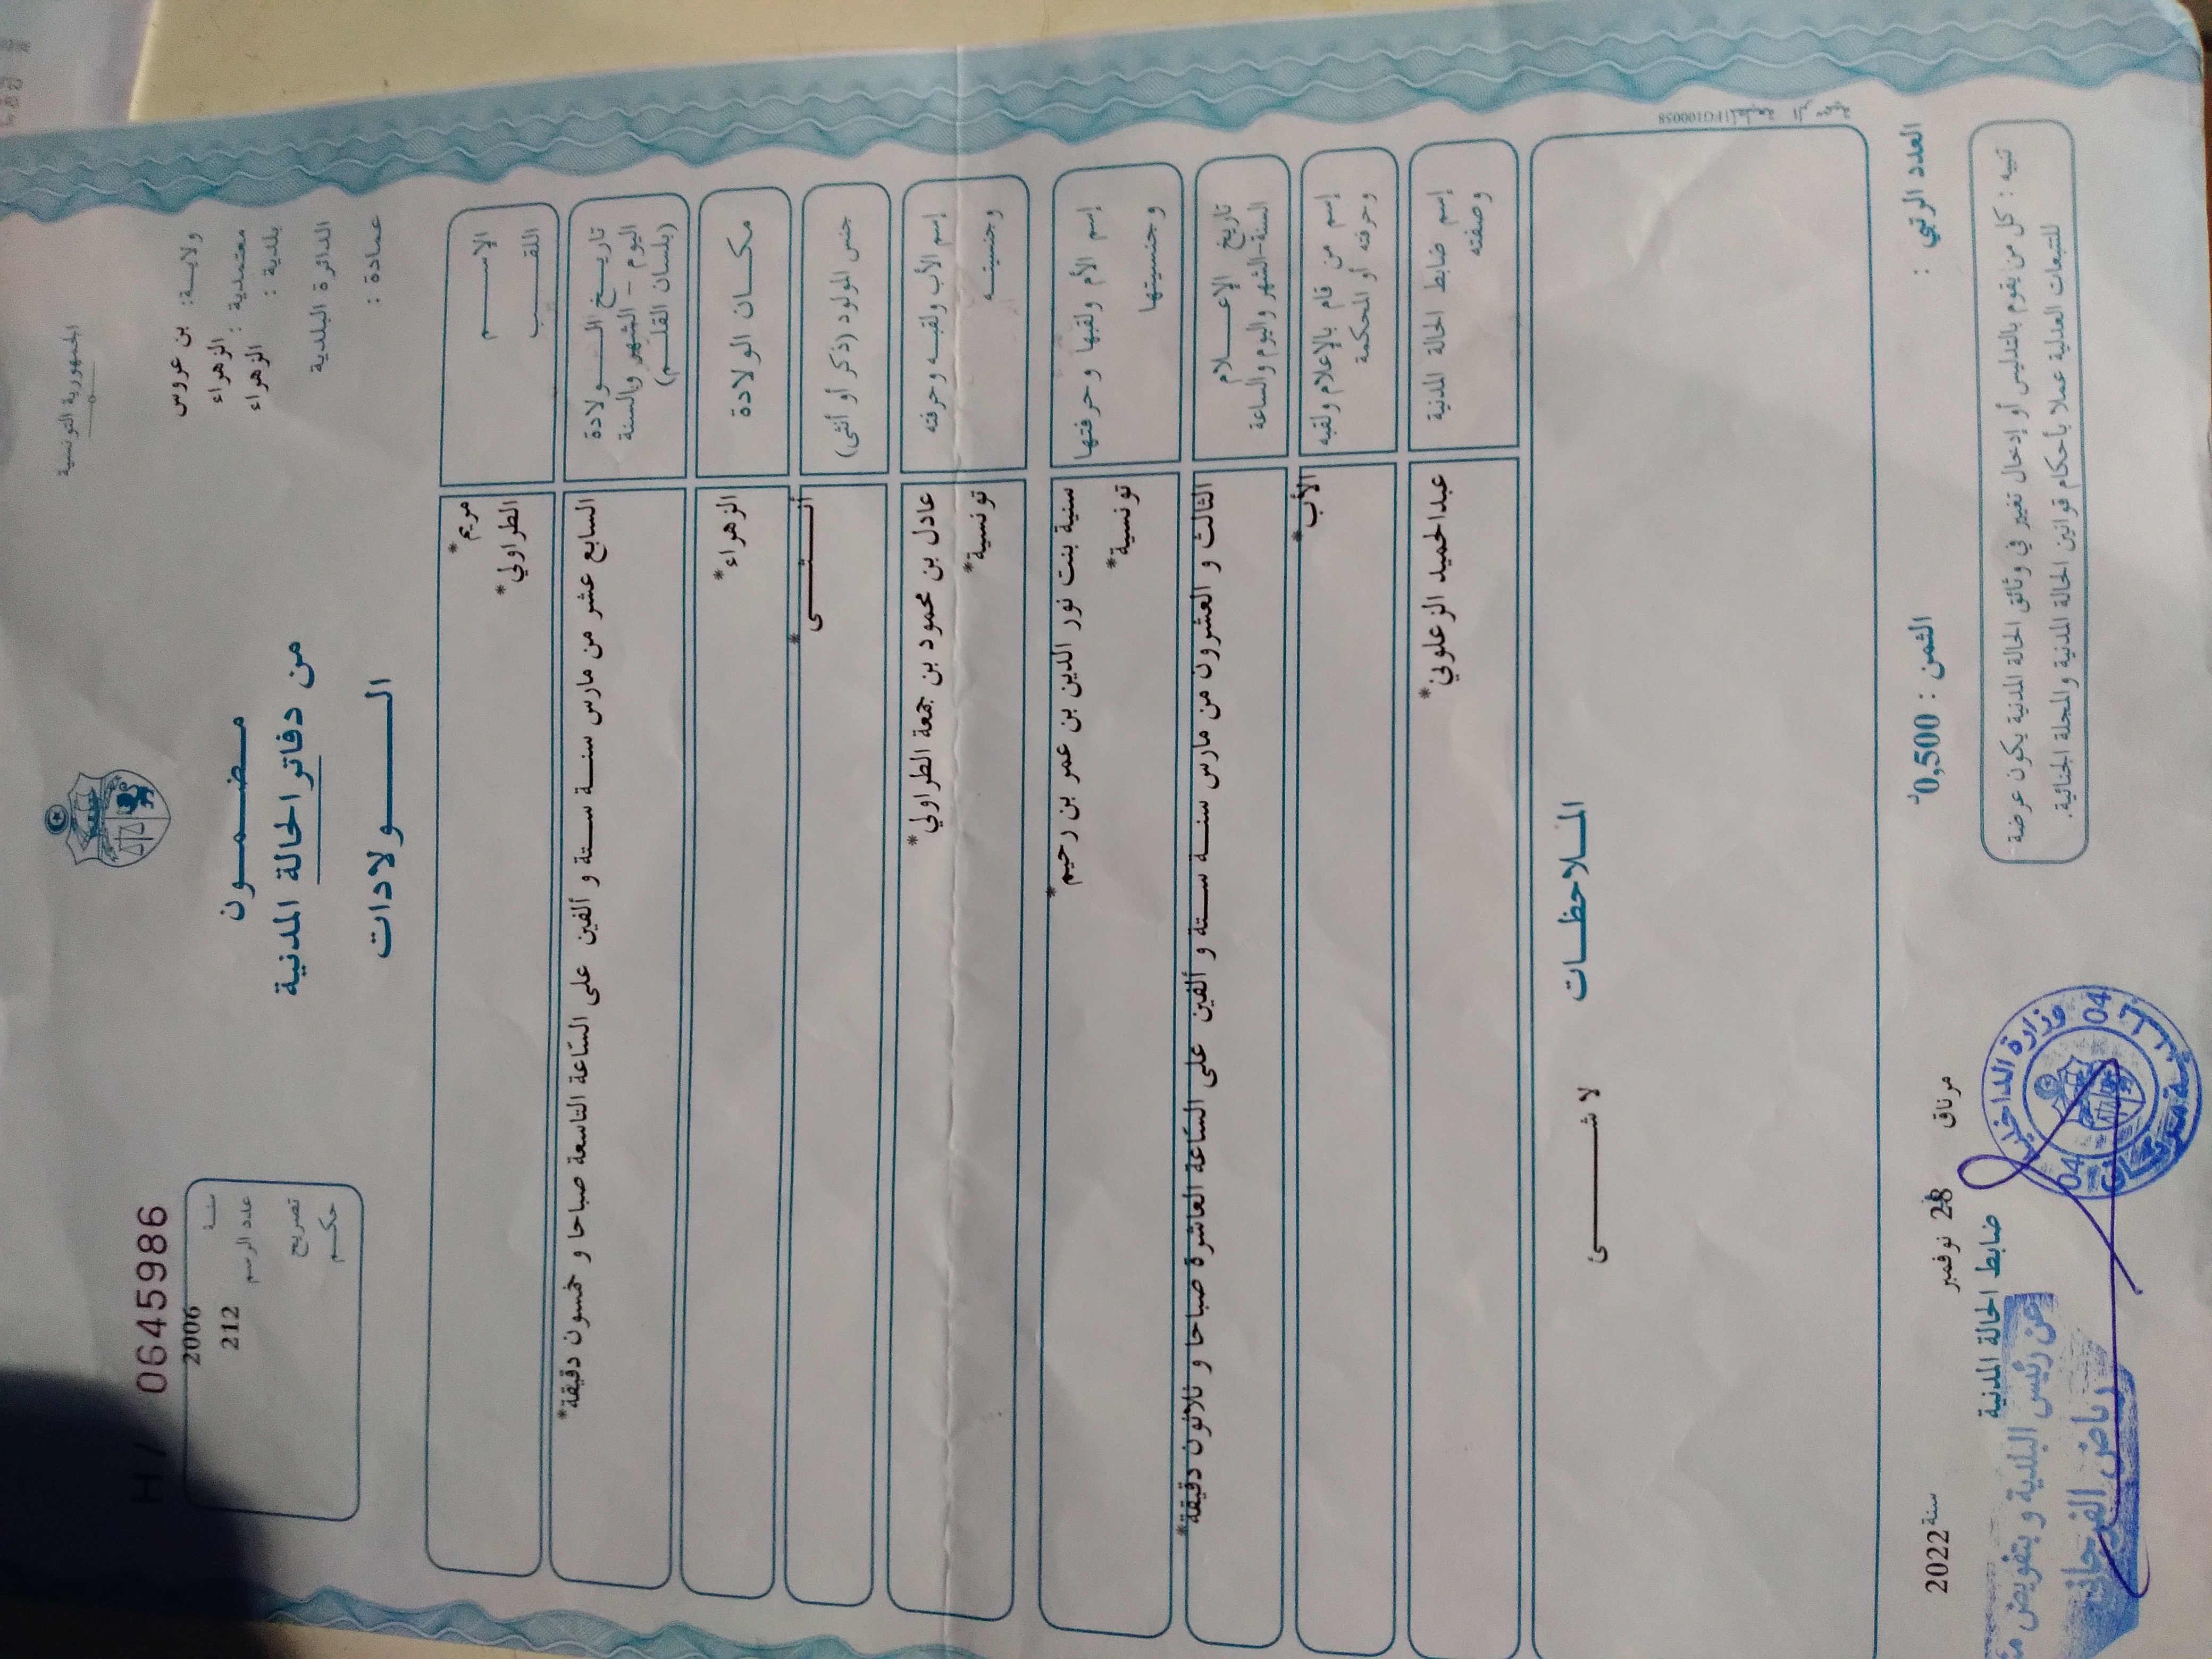 الجمهورية التونسية
ولايـة: بن عروس
معتمدية : الزهراء
بلدية : الزهراء
الدائرة البلدية
عمادة :
مـضـمـون
من دفاتر الحالة المدنية
الـولادات
H / 06645986
سنـة 2006
عدد الرسم 212
تصريح
حكـم
الإسـم مريم*
اللقـب الطراولي*
تاريـخ الـولادة
اليوم - الشهر والسنة
(بلسان القلـم)
السابع عشر من مارس سنة ستة و ألفين على السّاعة التاسعة صباحا و خمسون دقيقة*
مكـان الولادة الزهراء*
جنس المولود (ذكر أو أنثى) أنـثـى*
إسم الأب ولقبـه وحرفته
وجنسيتـه
عادل بن محمود بن جمعة الطراولي*
تونسية*
إسم الأم ولقبها وحرفتها
وجنسيتها
سنية بنت نور الدين بن عمر بن رحيم*
تونسية*
تاريخ الإعـلام
السنة-الشهر واليوم والساعة
الثالث و العشرون من مارس سنة ستة و ألفين على السّاعة العاشرة صباحا و ثلاثون دقيقة*
إسم من قام بالإعلام ولقبه
وحرفته أو المحكمة
الأب*
إسم ضابط الحالة المدنية
وصفته
عبدالحميد الزعلوني*
الملاحظـات
لا شـئ
العدد الرتبي :
الثمن : 0,500د
مرناق 28 نوفمبر سنة 2022
ضابط الحالة المدنية
تنبيه : كل من يقوم بالتدليس أو إدخال تغيير في وثائق الحالة المدنية يكون عرضة
للتتبعات العدلية عملا بأحكام قوانين الحالة المدنية والمجلة الجنائية.
وزارة الداخلية
04 04
عن رئيس البلدية و بتفويض
رياض الفرجاني